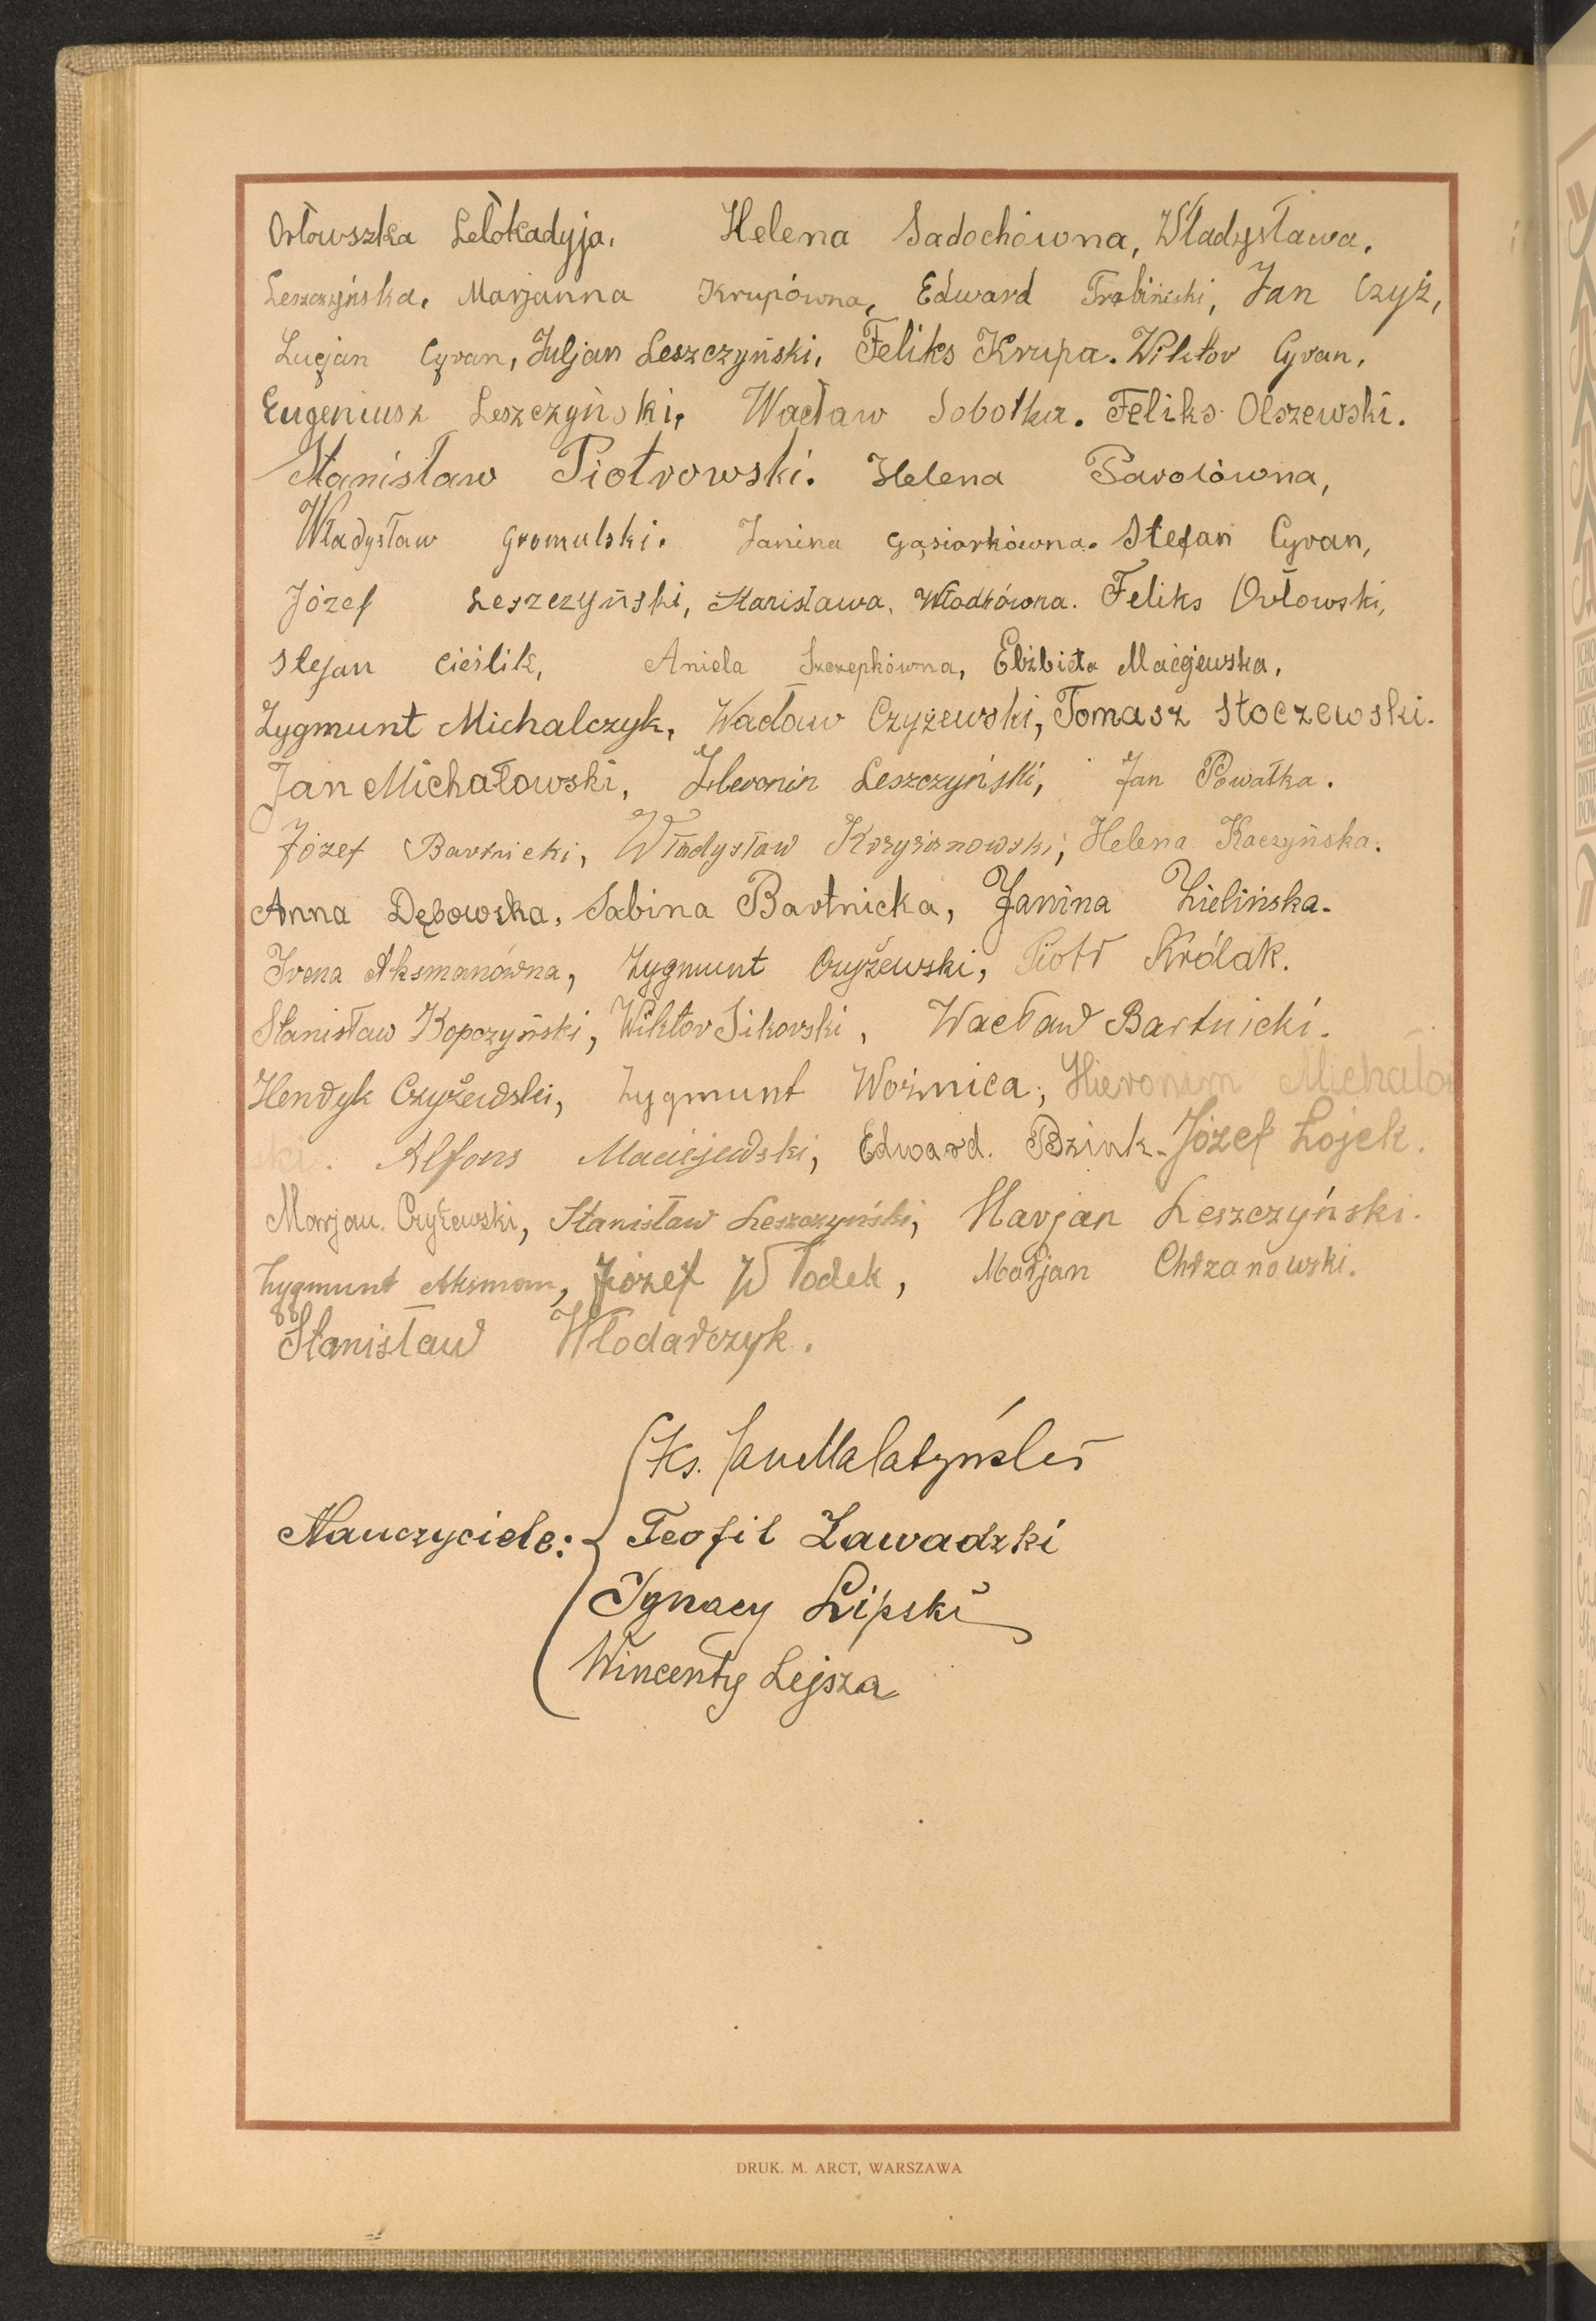 Orłowszka Lelokadyja. Helena Sadochówna, Władysława.
Leszczyńska. Marjanna Krupówna, Edward Trabiński, Jan Czyż,
Lucjan Cyran, Juljan Leszczyński, Feliks Krupa. Wiktor Cyran,
Eugeniusz Leszczyński, Wacław Sobotka. Feliks Olszewski.
Stanisław Piotrowski. Helena Parolówna,
Władysław Gromulski. Janina Gąsiorkówna. Stefan Cyran,
Józef Leszczyński, Stanisława, Włodkówna. Feliks Orłowski,
Stefan Cieślik, Aniela Szczepkówna, Elżbieta Maciejewska,
Zygmunt Michalczyk, Wacław Czyżewski, Tomasz Stoczewski.
Jan Michałowski, Leszczyński, Jan Powałka.
Józef Bartnicki, Władysław Krzyżanowski, Helena Kaczyńska.
Anna Dębowska, Sabina Bartnicka, Janina Zielińska.
Irena Aksmanówna, Zygmunt Czyżewski, Piotr Królak.
Stanisław Kopczyński, Wiktor Sikorski, Wacław Bartnicki.
Henryk Czyżewski, Zygmunt Woźnica, Hieronim Michałow
ski. Alfons Maciejewski, Edward. Bziuk. Józef Łojek.
Marjan. Czyżewski, Stanisław Leszczyński, Marjan Leszczyński.
Zygmunt Aksman, Józef Włodek, Marjan Chrzanowski.
Stanisław Włodarczyk.
Ks. Jan Małatyński
Nauczyciele: Teofil Zawadzki
Ignacy Lipski
Wincenty Lejsza
DRUK. M. ARCT, WARSZAWA